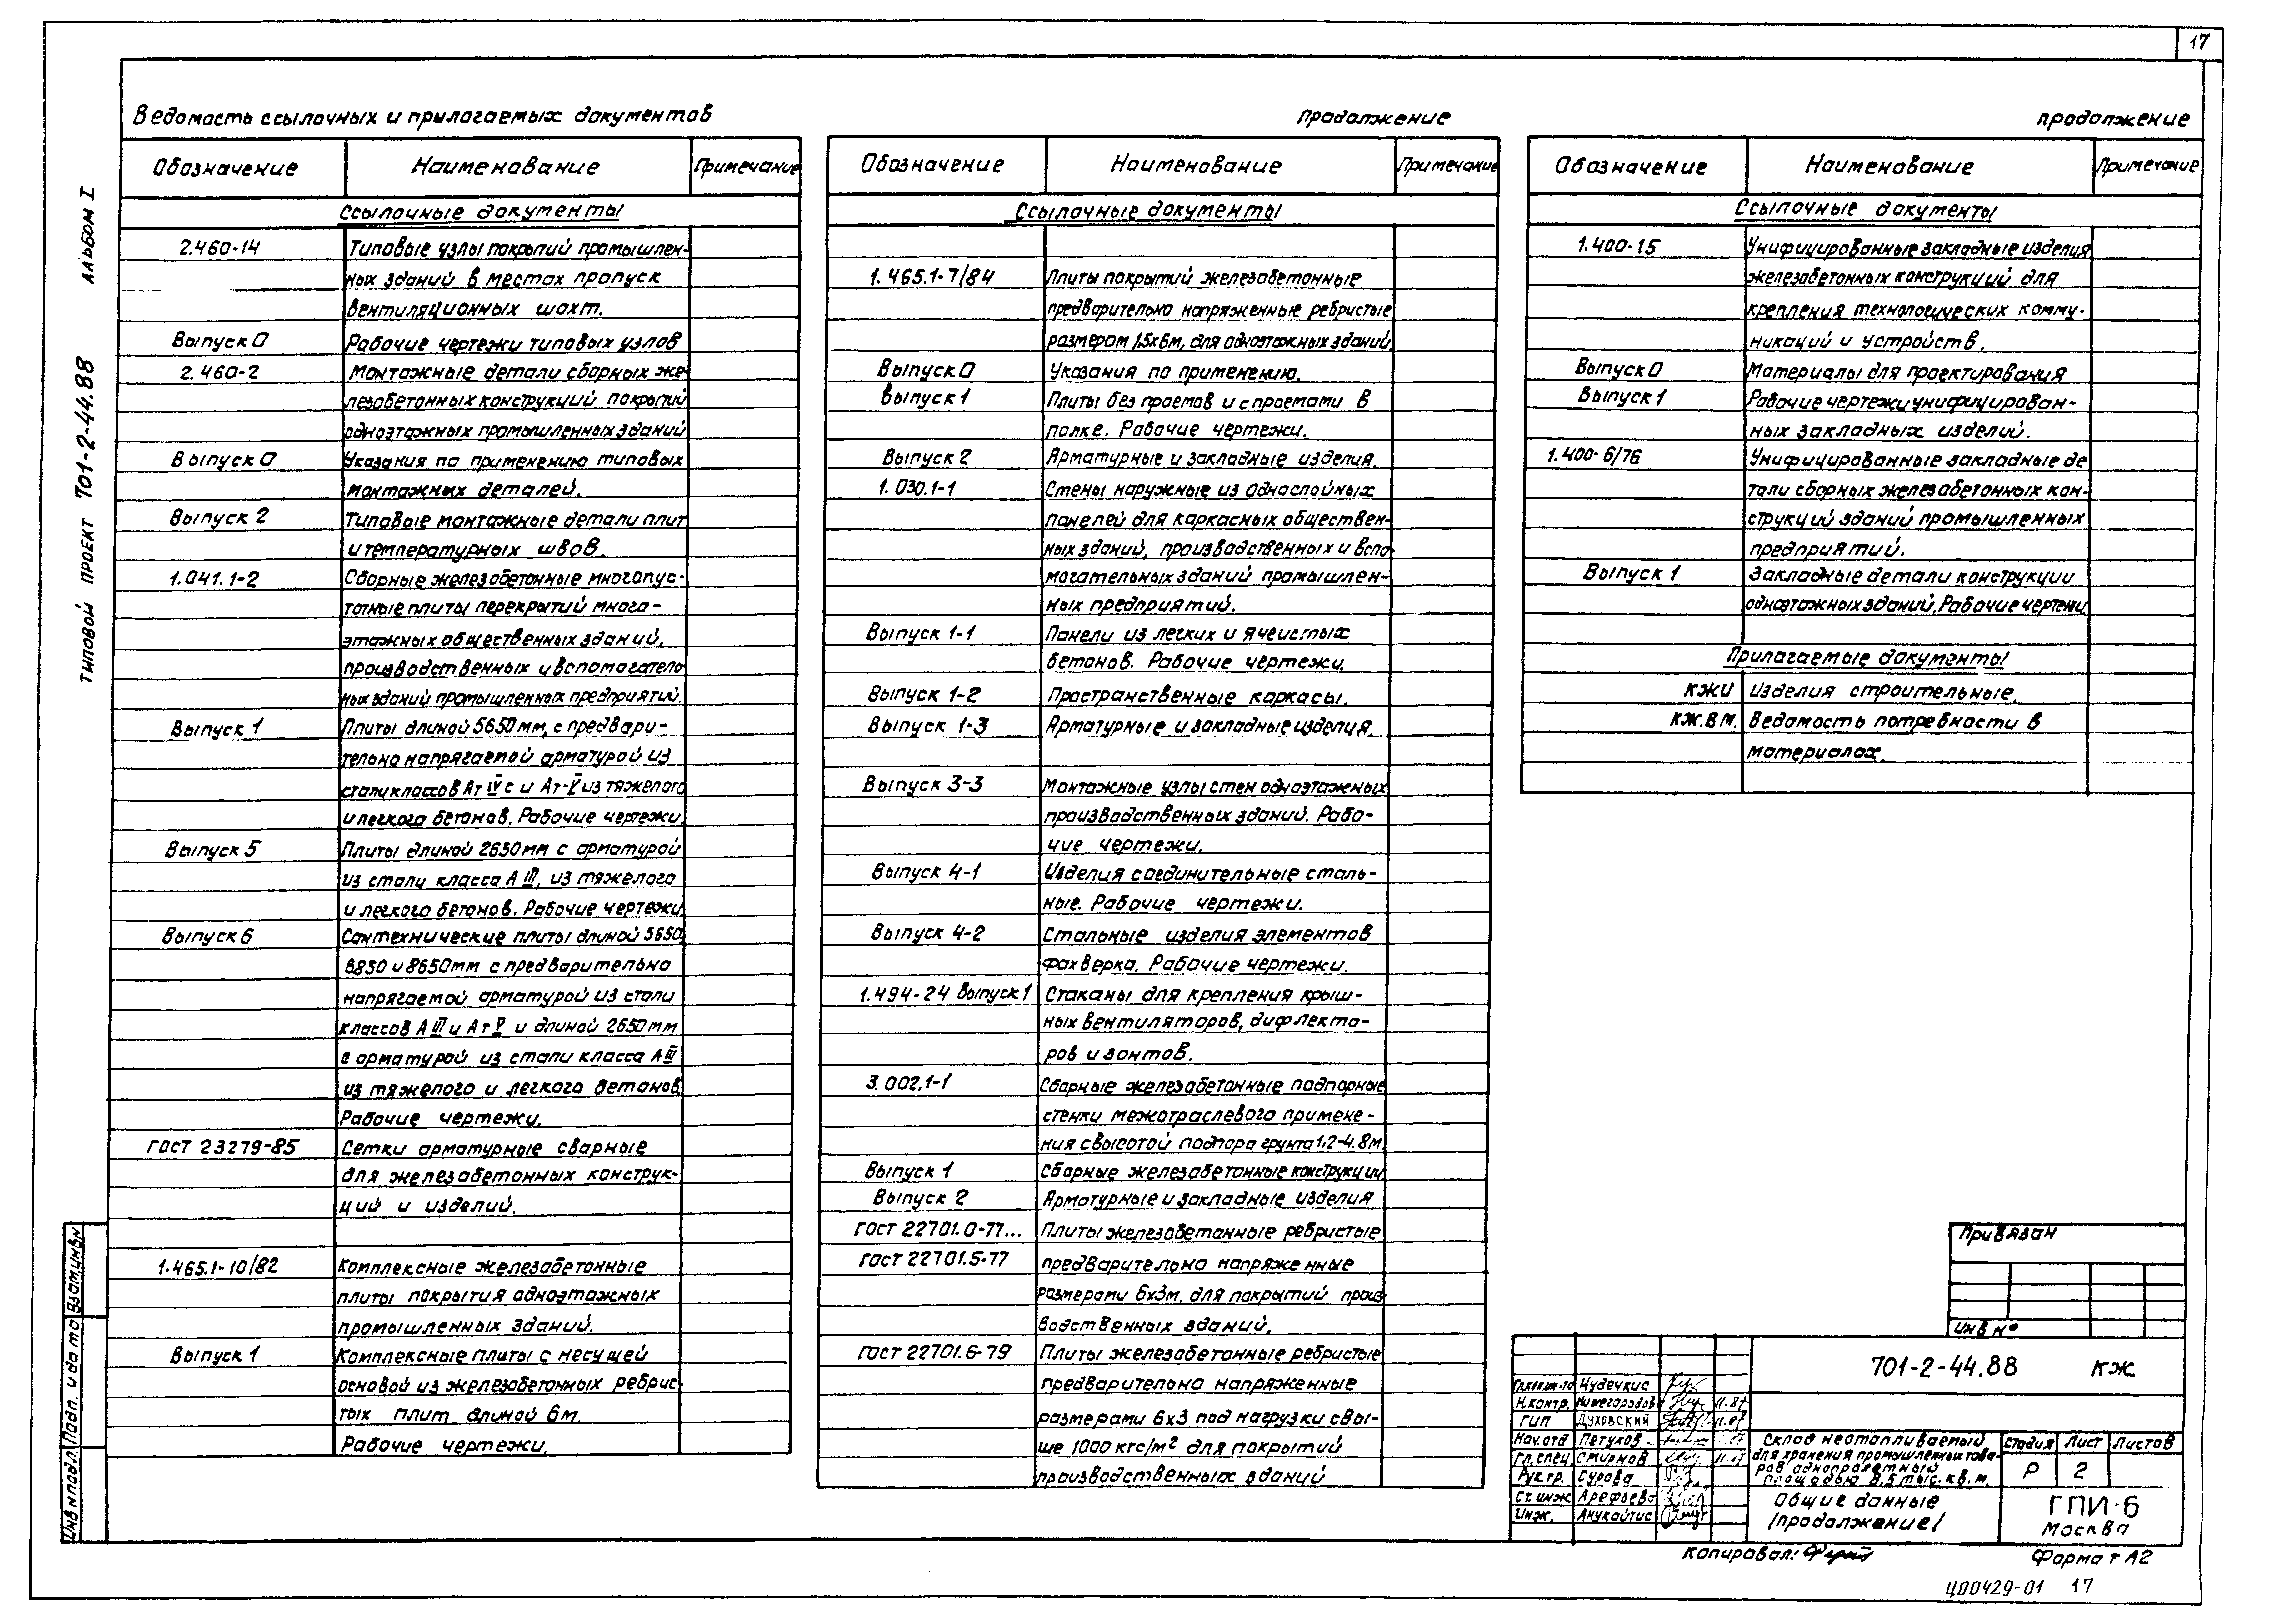 17
Ведомость ссылочных и прилагаемых документов
Обозначение Наименование Примечание
Ссылочные документы
2.460-14 Типовые узлы покрытий промышлен-
ных зданий в местах пропуск
вентиляционных шахт.
Выпуск 0 Рабочие чертежи типовых узлов
2.460-2 Монтажные детали сборных же-
лезобетонных конструкций покрытий
одноэтажных промышленных зданий
Выпуск 0 Указания по применению типовых
монтажных деталей.
Выпуск 2 Типовые монтажные детали плит
и температурных швов.
1.041.1-2 Сборные железобетонные многопус-
тотные плиты перекрытий много-
этажных общественных зданий,
производственных и вспомогатель
ных зданий промышленных предприятий.
Выпуск 1 Плиты длиной 5650 мм, с предвари-
тельно напрягаемой арматурой из
стали классов Ат IV с и Ат-V из тяжелого
и легкого бетонов. Рабочие чертежи.
Выпуск 5 Плиты длиной 2650 мм с арматурой
из стали класса А III, из тяжелого
и легкого бетонов. Рабочие чертежи.
Выпуск 6 Сантехнические плиты длиной 5650,
6850 и 8650 мм с предварительно
напрягаемой арматурой из стали
классов А III и Ат V и длиной 2650 мм
с арматурой из стали класса А III
из тяжелого и легкого бетонов.
Рабочие чертежи.
ГОСТ 23279-85 Сетки арматурные сварные
для железобетонных конструк-
ций и изделий.
1.465.1-10/82 Комплексные железобетонные
плиты покрытия одноэтажных
промышленных зданий.
Выпуск 1 Комплексные плиты с несущей
основой из железобетонных ребрис-
тых плит длиной 6 м.
Рабочие чертежи.
продолжение
Обозначение Наименование Примечание
Ссылочные документы
1.465.1-7/84 Плиты покрытий железобетонные
предварительно напряженные ребристые
размером 1,5х6м, для одноэтажных зданий.
Выпуск 0 Указания по применению.
Выпуск 1 Плиты без проемов и с проемами в
полке. Рабочие чертежи.
Выпуск 2 Арматурные и закладные изделия.
1.030.1-1 Стены наружные из однослойных
панелей для каркасных обществен-
ных зданий, производственных и вспо-
могательных зданий промышлен-
ных предприятий.
Выпуск 1-1 Панели из легких и ячеистых
бетонов. Рабочие чертежи.
Выпуск 1-2 Пространственные каркасы.
Выпуск 1-3 Арматурные и закладные изделия.
Выпуск 3-3 Монтажные узлы стен одноэтажных
производственных зданий. Рабо-
чие чертежи.
Выпуск 4-1 Изделия соединительные сталь-
ные. Рабочие чертежи.
Выпуск 4-2 Стальные изделия элементов
фахверка. Рабочие чертежи.
1.494-24 выпуск 1 Стаканы для крепления крыш-
ных вентиляторов, дифлекто-
ров и зонтов.
3.002.1-1 Сборные железобетонные подпорные
стенки межотраслевого примене-
ния с высотой подпора грунта 1.2-4.8м.
Выпуск 1 Сборные железобетонные конструкции
Выпуск 2 Арматурные и закладные изделия
ГОСТ 22701.0-77... Плиты железобетонные ребристые
ГОСТ 22701.5-77 предварительно напряженные
размерами 6х3м, для покрытий произ
водственных зданий.
ГОСТ 22701.6-79 Плиты железобетонные ребристые
предварительно напряженные
размерами 6х3 под нагрузки свы-
ше 1000 кгс/м² для покрытий
производственных зданий
продолжение
Обозначение Наименование Примечание
Ссылочные документы
1.400-15 Унифицированные закладные изделия
железобетонных конструкций для
крепления технологических комму-
никаций и устройств.
Выпуск 0 Материалы для проектирования
Выпуск 1 Рабочие чертежи унифицирован-
ных закладных изделий.
1.400-6/76 Унифицированные закладные де
тали сборных железобетонных кон-
струкций зданий промышленных
предприятий.
Выпуск 1 Закладные детали конструкции
одноэтажных зданий. Рабочие чертежи.
Прилагаемые документы
КЖИ Изделия строительные.
КЖ.ВМ. Ведомость потребности в
материалах.
ТИПОВОЙ ПРОЕКТ 701-2-44.88 АЛЬБОМ I
Инв.№подл. Подп. и дата Взам.инв№
Привязан
Инв №
701-2-44.88 КЖ
Чудечкис
Н.контр. Нижегородова 11.87
ГИП Духовский 11.87
Нач.отд Петухов
Гл.спец Смирнов
Рук.гр. Сурова
Ст.инж Арефьева
Инж. Анукайтис
Склад неотапливаемый
для хранения промышленных това-
ров однопролетный
площадью 8,5 тыс.кв.м.
Стадия Лист Листов
Р 2
Общие данные
/продолжение/
ГПИ-6
Москва
Копировал:
Формат А2
Ц00429-01 17